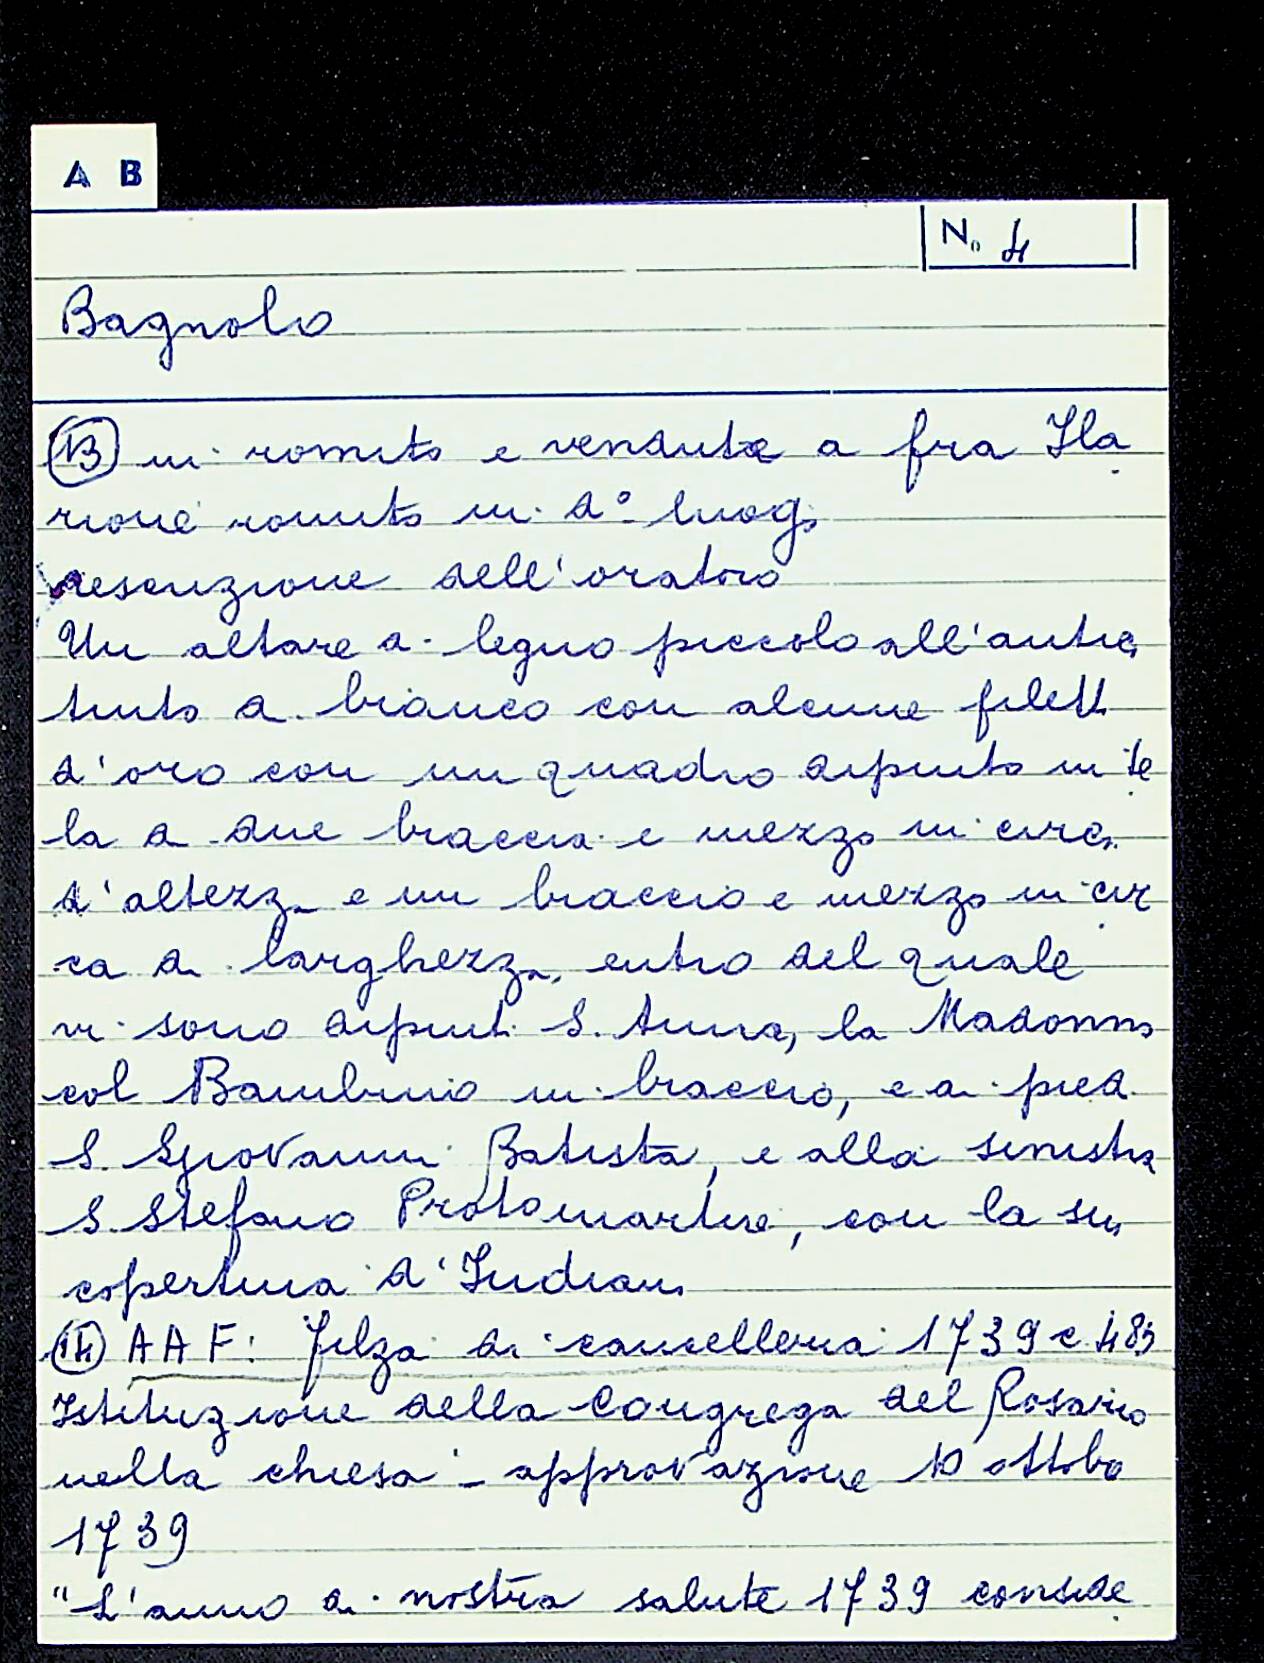 A B
N. 4
Bagnolo
(13) in romito e vendute a fra Ila
rione romito in d° luogo
descrizione dell'oratorio
Un altare di legno piccolo all'antica
tinto di bianco con alcune filetti
d'oro con un quadro dipinto in te
la di due braccia e mezzo in circa
d'altezza e un braccio e mezzo in cir
ca di larghezza, entro del quale
vi sono dipinti S. Anna, la Madonna
col Bambino in braccio, e a piedi
S. Giovanni Batista, e alla sinistra
S. Stefano Protomartire, con la sua
copertina d'Indiana
(14) AAF: Filza di cancelleria 1739 c 485
Istituzione della Congrega del Rosario
nella chiesa - approvazione 10 ottobre
1739
"L'anno di nostra salute 1739 conside